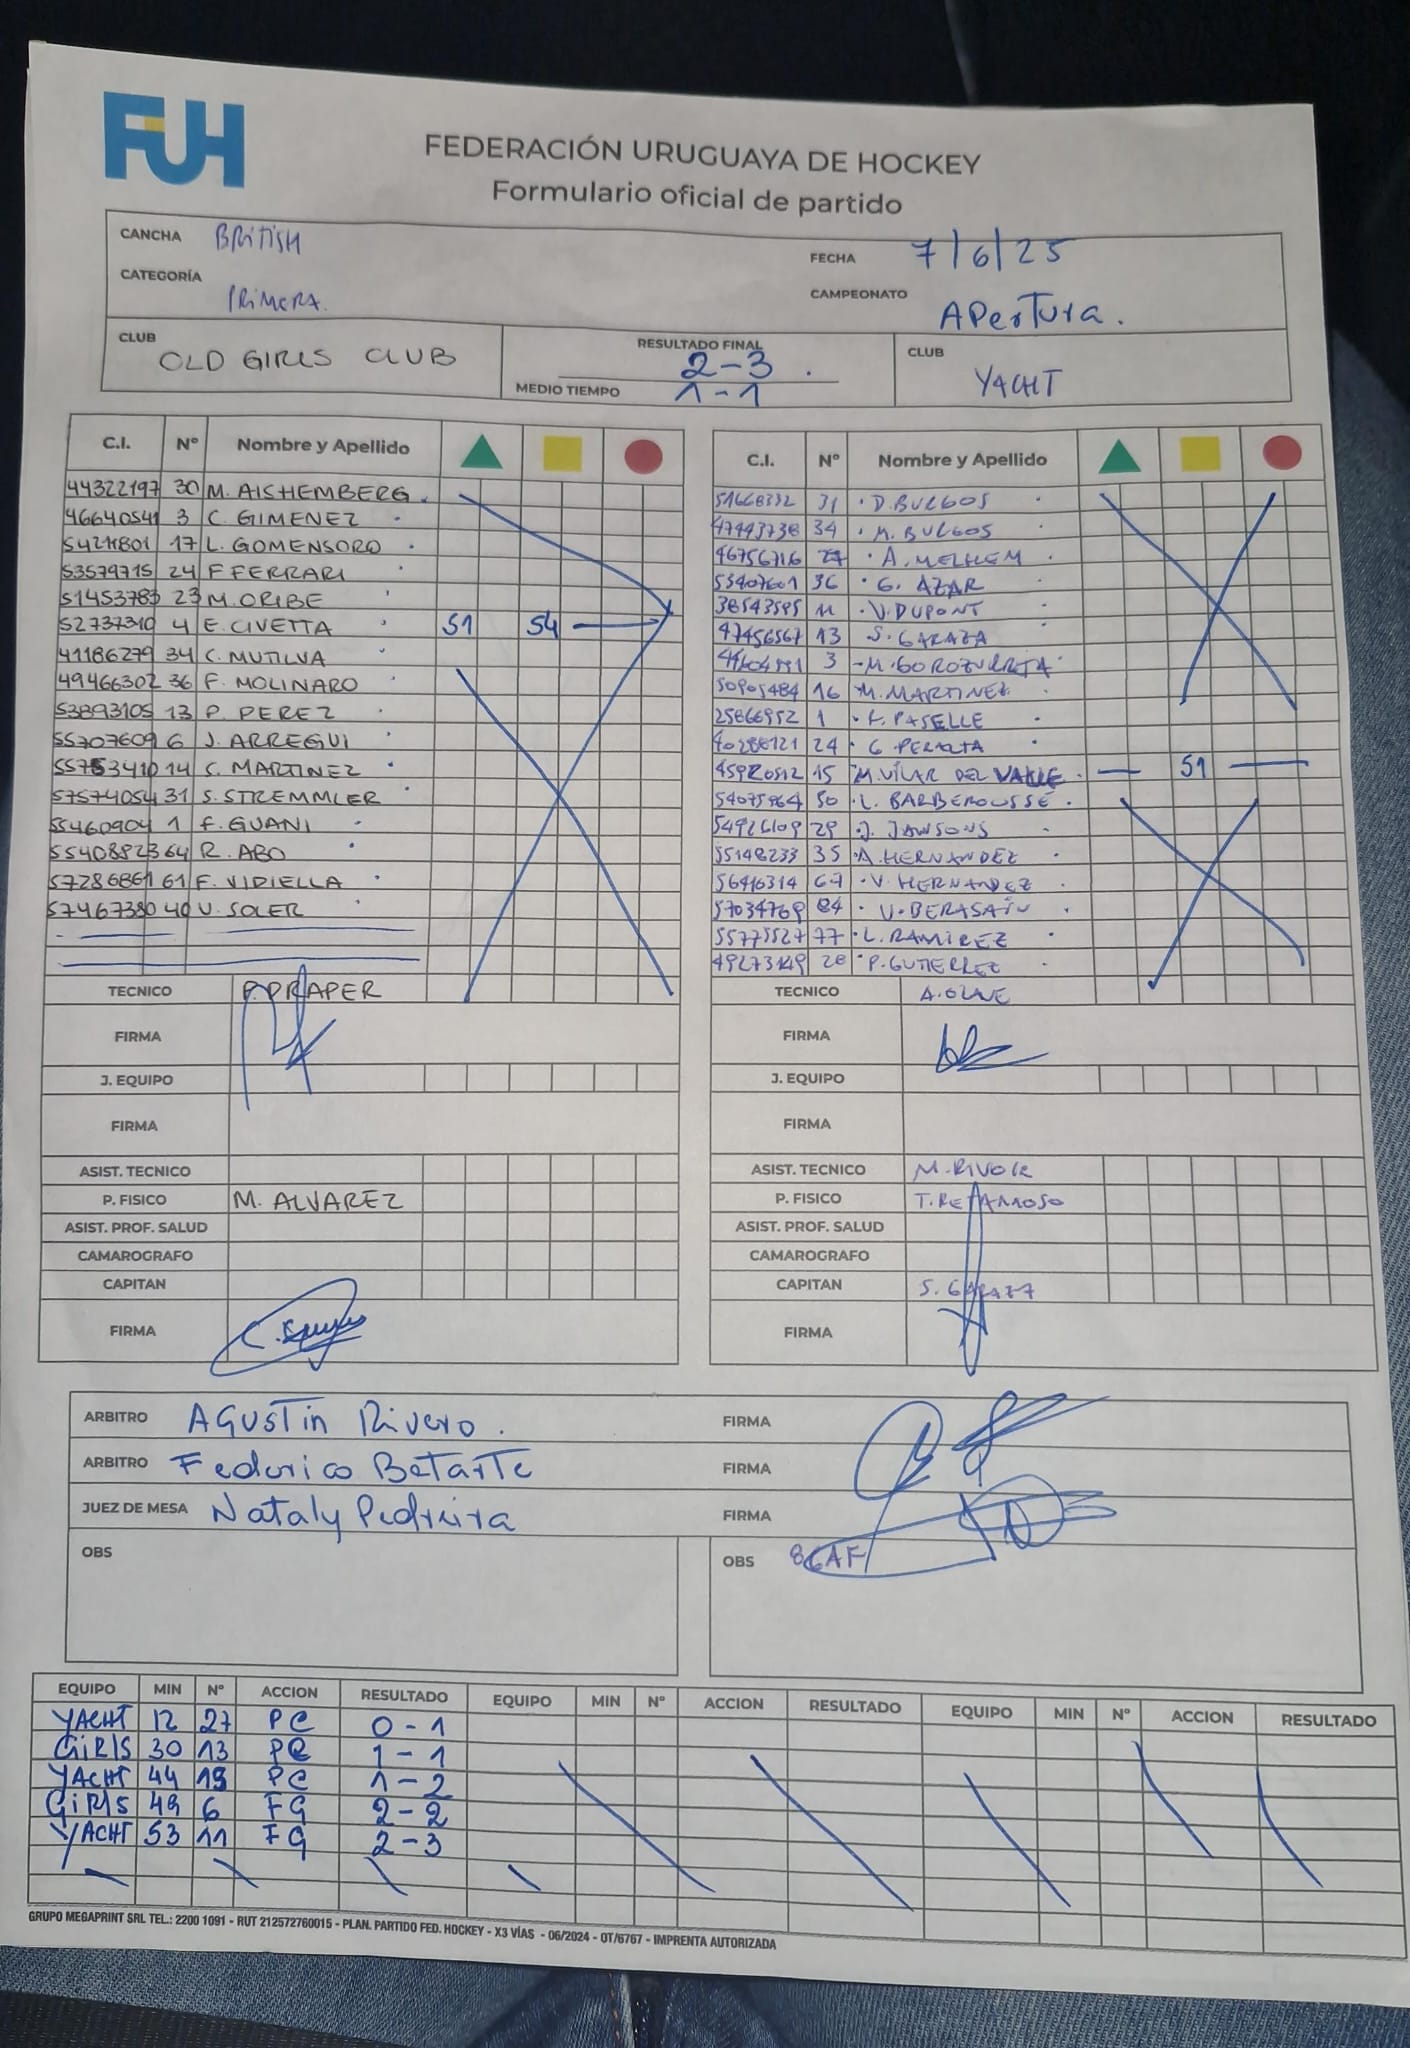 FUH
FEDERACIÓN URUGUAYA DE HOCKEY
Formulario oficial de partido
CANCHA BRITISH
FECHA 7/6/25
CATEGORÍA PRIMERA.
CAMPEONATO APERTURA.
CLUB OLD GIRLS CLUB
RESULTADO FINAL 2-3
MEDIO TIEMPO 1-1
CLUB YACHT
C.I. Nº Nombre y Apellido
44322197 30 M. AISHEMBERG
46640541 3 C. GIMENEZ
54211801 17 L. GOMENSORO
53579715 24 F FERRARI
51453783 23 M. ORIBE
52737310 4 E. CIVETTA 51 54
41186279 34 C. MUTILVA
49466302 36 F. MOLINARO
53893105 13 P. PEREZ
55707609 6 J. ARREGUI
55753410 14 S. MARTINEZ
57574054 31 S. STREMMLER
55460904 1 F. GUANI
55408823 64 R. ABO
57286861 61 F. VIDIELLA
57467380 40 V. SOLER
TECNICO P. DRAPER
FIRMA
J. EQUIPO
FIRMA
ASIST. TECNICO
P. FISICO M. ALVAREZ
ASIST. PROF. SALUD
CAMAROGRAFO
CAPITAN
FIRMA
C.I. Nº Nombre y Apellido
51668332 31 D. BURGOS
47443738 34 M. BURGOS
46756716 27 A. MELHEM
53407601 36 G. AZAR
38543595 11 V. DUPONT
47456567 13 S. GARAZA
3 M. GOROZURRETA
50905484 16 M. MARTINEZ
25866952 1 F. PASELLE
40288121 24 G PERALTA
45920512 15 M. VILAR DEL VALLE 51
54075864 50 L. BARBEROUSSE
54926109 29 J. JAWSONS
55148233 35 A. HERNANDEZ
56416314 67 V. HERNANDEZ
57034769 84 V. BERASAIN
55775527 77 L. RAMIREZ
49273149 28 P. GUTIERREZ
TECNICO A. OLAVE
FIRMA
J. EQUIPO
FIRMA
ASIST. TECNICO M. RIVOIR
P. FISICO T. RETAMOSO
ASIST. PROF. SALUD
CAMAROGRAFO
CAPITAN S. GARAZA
FIRMA
ARBITRO AGUSTIN RIVERO. FIRMA
ARBITRO Federico Betarte FIRMA
JUEZ DE MESA Nataly Pedreira FIRMA
OBS
OBS
EQUIPO MIN Nº ACCION RESULTADO EQUIPO MIN Nº ACCION RESULTADO EQUIPO MIN Nº ACCION RESULTADO
YACHT 12 27 PC 0-1
GIRLS 30 13 PC 1-1
YACHT 44 15 PC 1-2
GIRLS 49 6 FG 2-2
YACHT 53 11 FG 2-3
GRUPO MEGAPRINT SRL TEL.: 2200 1091 - RUT 212572760015 - PLAN. PARTIDO FED. HOCKEY - X3 VÍAS - 06/2024 - OT/6767 - IMPRENTA AUTORIZADA